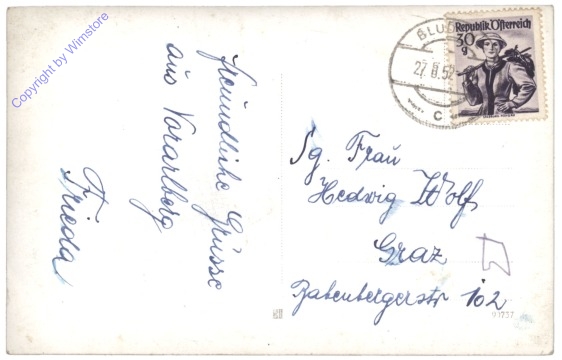 Copyright by Wimstore
freundliche Grüsse
aus Vorarlberg
Frieda
BLUD
27. 8. 52
C
Republik Österreich
30
g
Sg. Frau
Hedwig Wolf
Graz
Babenbergerstr 102
91737